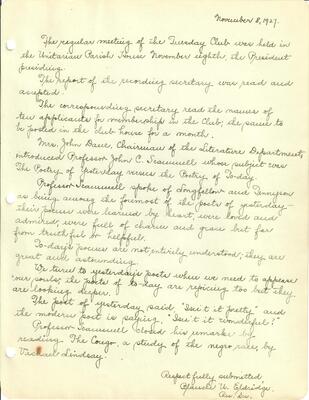 November 8, 1927.
The regular meeting of the Tuesday Club was held in
the Unitarian Parish House November eighth, the President
presiding.
The report of the recording secretary was read and
accepted.
The corresponding secretary read the names of
ten applicants for membership in the Club, the same to
be posted in the club house for a month.
Mrs. John Dane, Chairman of the Literature Department,
introduced Professor John C. Scammell whose subject was
The Poetry of Yesterday versus the Poetry of Today.
Professor Scammell spoke of Longfellow and Tennyson
as being among the foremost of the poets of yesterday—
their poems were learned by heart, were loved and
admired, were full of charm and grace but far
from truthful or helpful.
Today's poems are not entirely understood; they are
great and astounding.
We turn to yesterday's poets when we need to appease
our souls; the poets of to-day are rejoicing too but they
are looking deeper.
The poet of yesterday said, "Isn't it pretty" and
the modern poet is saying, "Isn't it wonderful?"
Professor Scammell closed his remarks by
reading The Congo, a study of the negro race, by
Vachel Lindsay.
Respectfully submitted
Blanche W. Eldridge.
Rec. Sec.